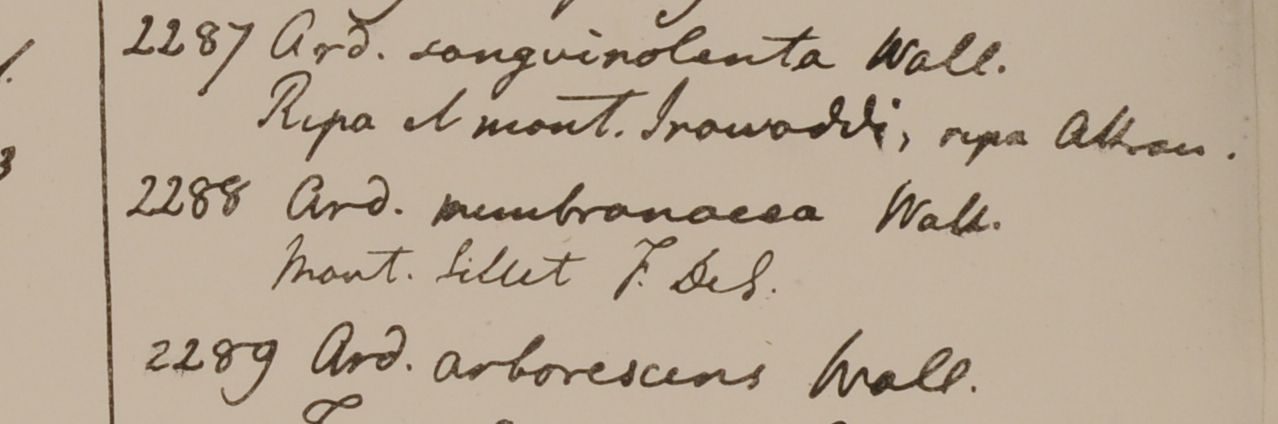 2287 Ard. sanguinolenta Wall.
Ripa et mont. Irawaddi, ripa Attran.
2288 Ard. membranacea Wall.
Mont. Sillet F. De S.
2289 Ard. arborescens Wall.